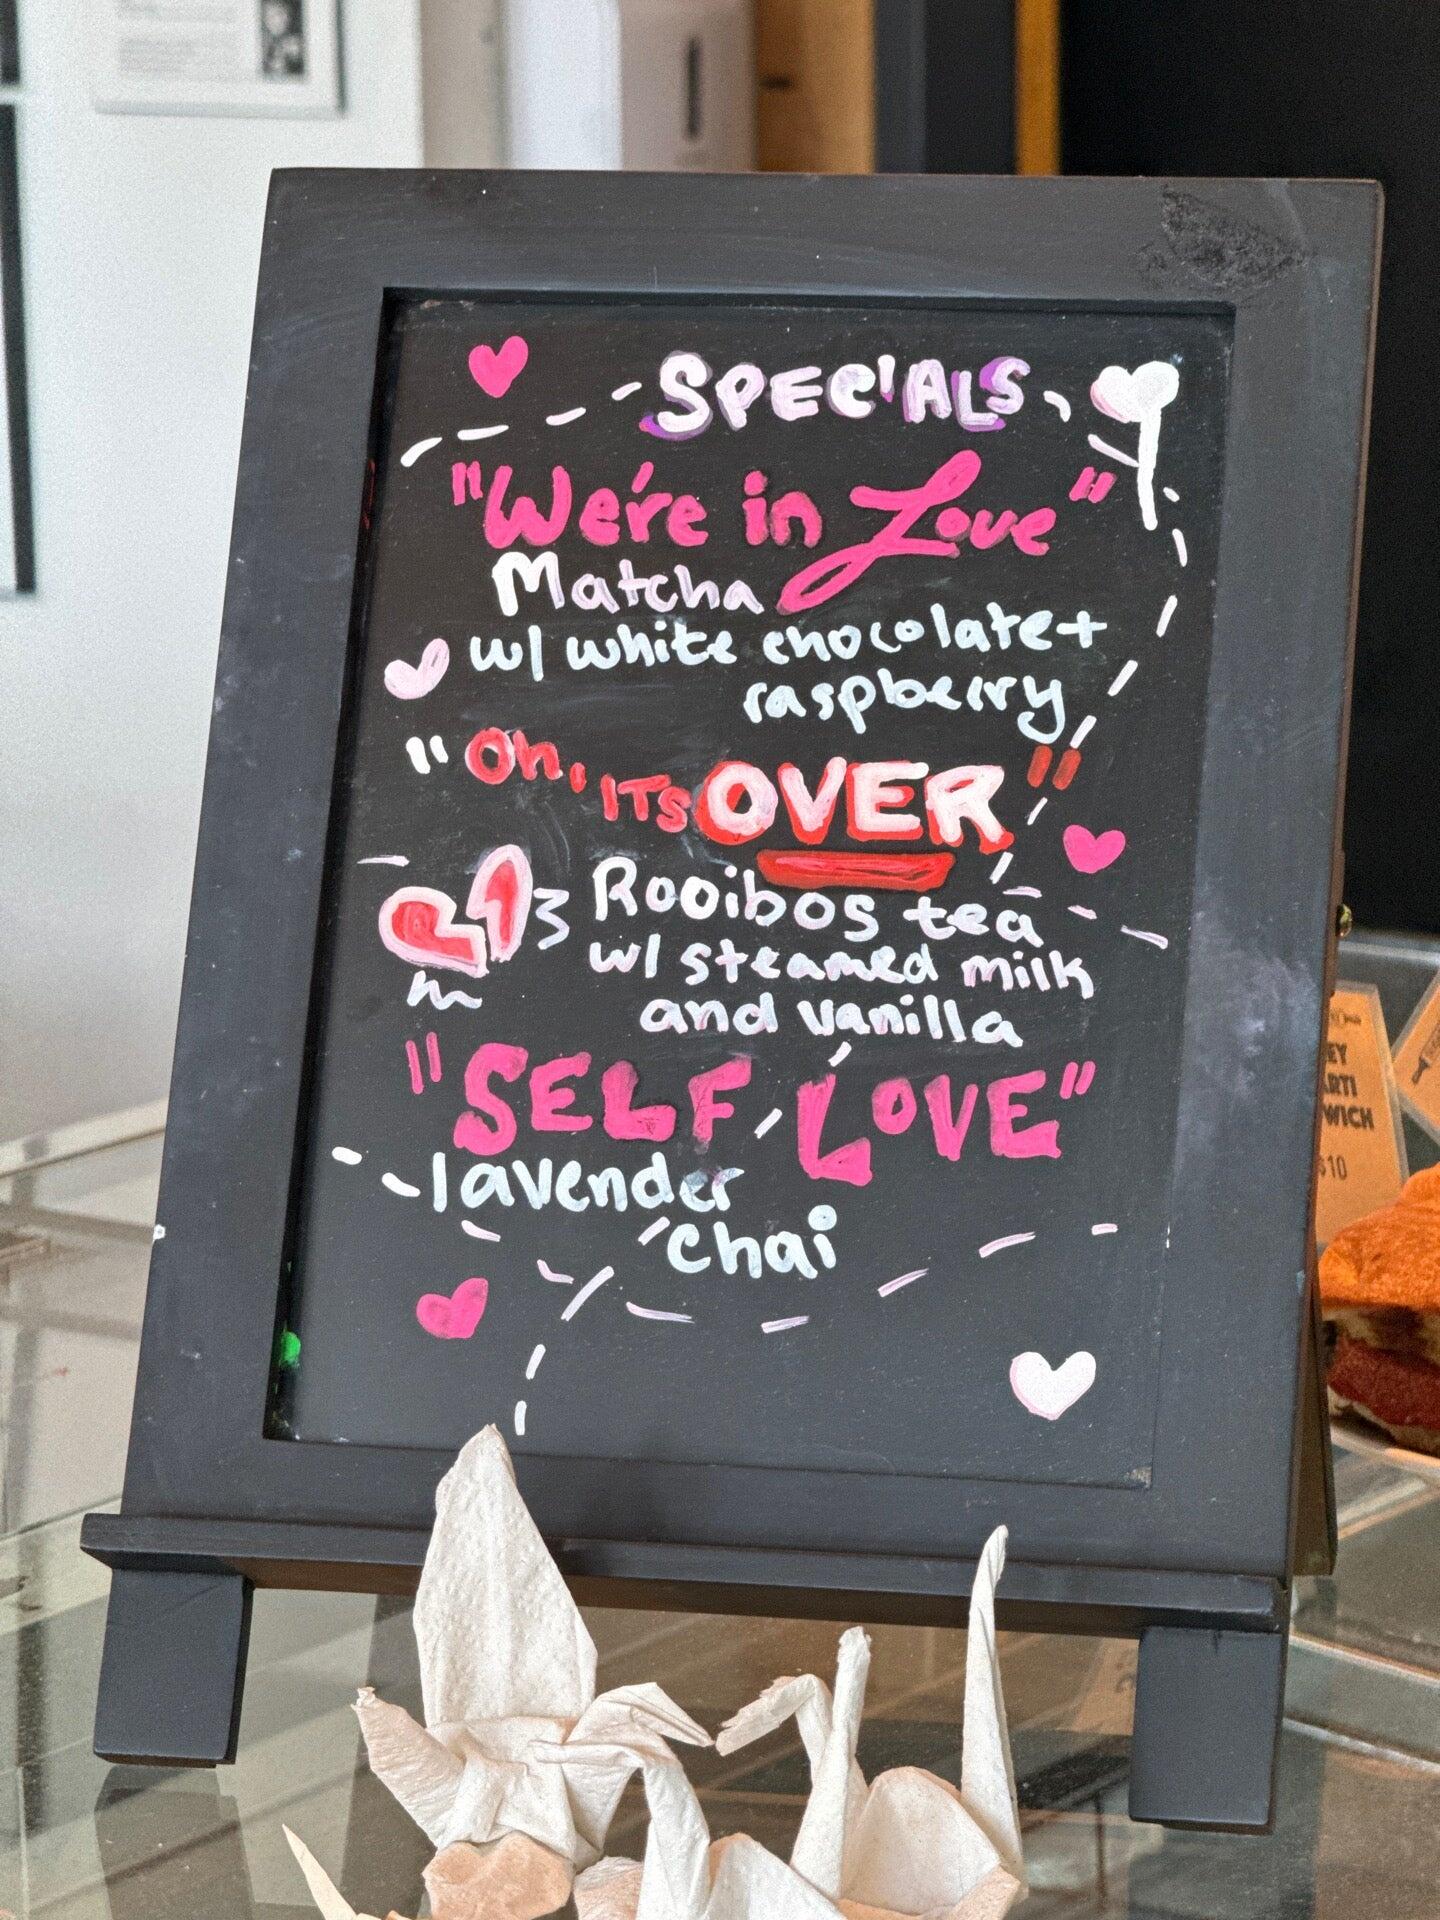 SPECIALS
"We're in Love"
Matcha
w/ white chocolate +
raspberry
"Oh, ITS OVER"
Rooibos tea
w/ steamed milk
and vanilla
"SELF LOVE"
lavender
chai
EY
ARTI
WICH
$10